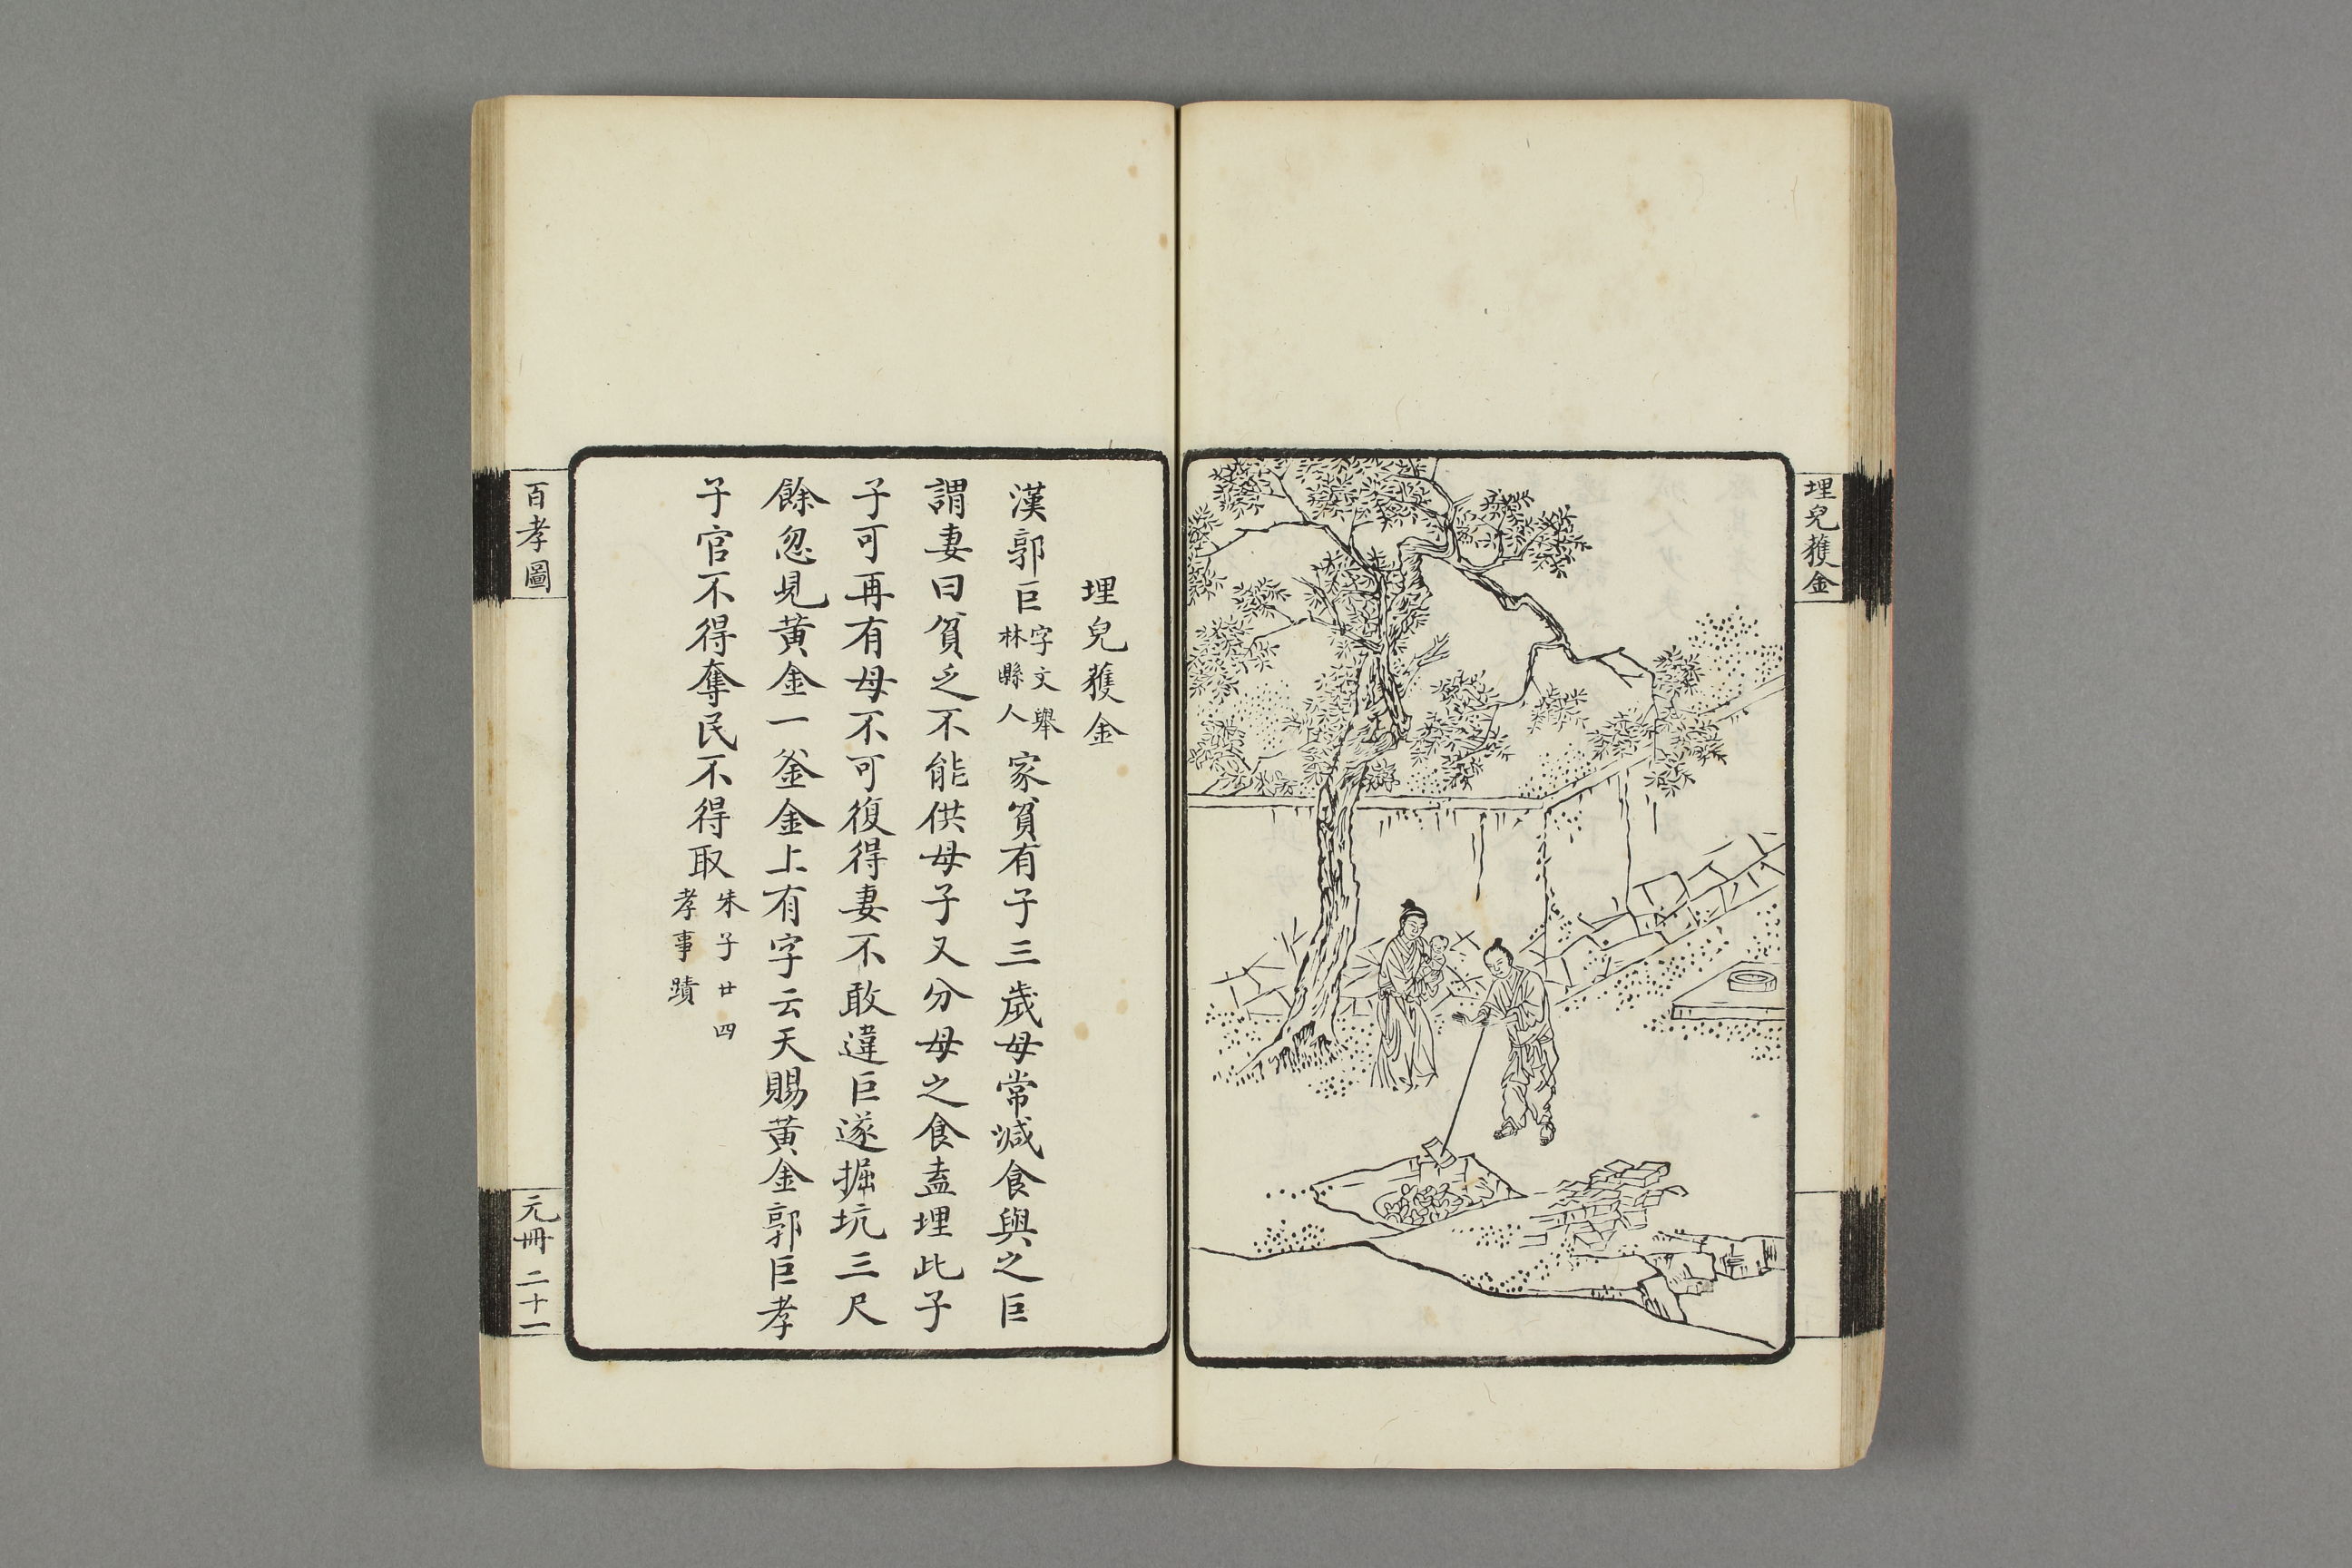 埋兒獲金
埋兒獲金
漢郭巨字文舉林縣人家貧有子三歲母常減食與之巨
謂妻曰貧乏不能供母子又分母之食盍埋此子
子可再有母不可復得妻不敢違巨遂掘坑三尺
餘忽見黃金一釜金上有字云天賜黃金郭巨孝
子官不得奪民不得取朱子廿四孝事蹟
百孝圖
元冊 二十一